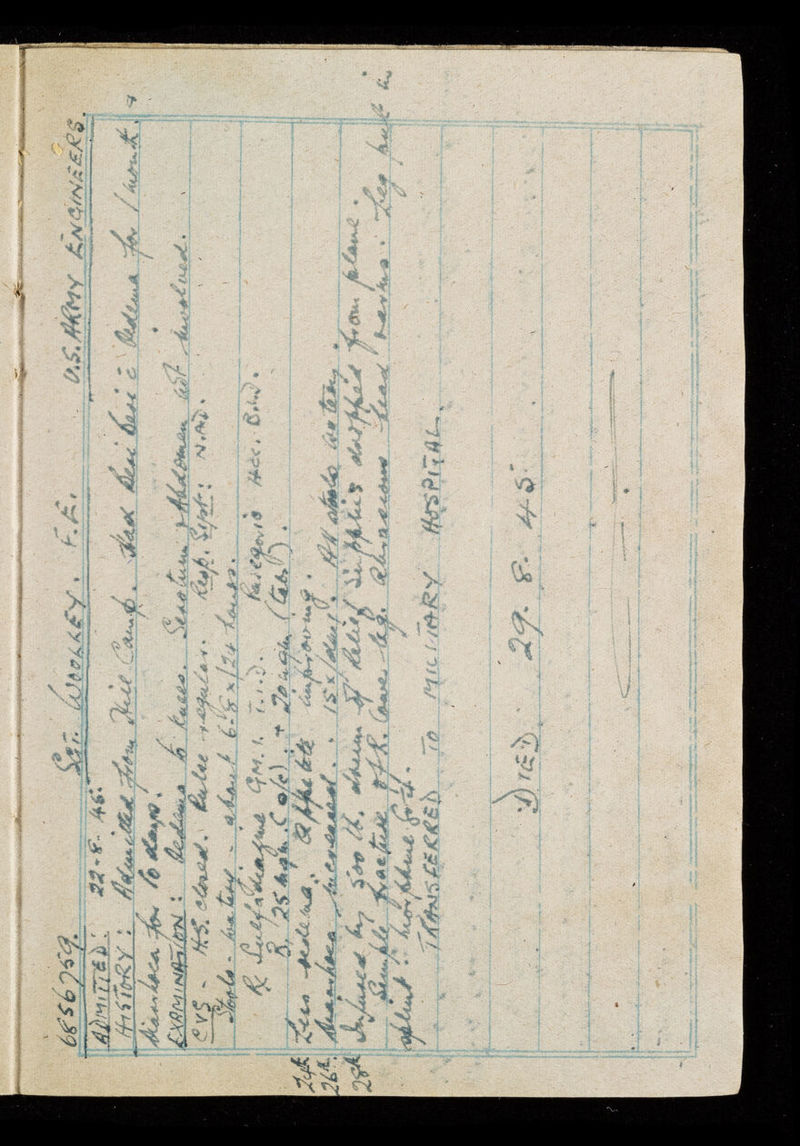 6856759. Sgt. WOOLLEY. F.E. U.S. ARMY ENGINEERS.
ADMITTED: 22-8-45.
HISTORY: Admitted from Hill Camp. Had Beri Beri c̄ Oedema for 1 month. +
diarrhoea for 10 days.
EXAMINATION: Oedema to knees. Scrotum & Abdomen not involved.
CVS - H.S. closed. Pulse regular. Resp. Syst: N.A.D.
Stools - watery - about 6-8x/24 hours.
Rx Sulfadiazine GM. 1. T.I.D. Paregoric B.I.D.
B, 25 mgm. + 20 mgm (tab).
24th Less oedema. Appetite improving.
26th Diarrhoea increased. 15x/day. All stools watery.
28th Injured by 500 lb. drum of Relief supplies dropped from plane.
Simple fracture of R. lower leg. Abrasions head. Leg put in
splint. Morphine
TRANSFERRED TO MILITARY HOSPITAL.
DIED 29. 8. 45.